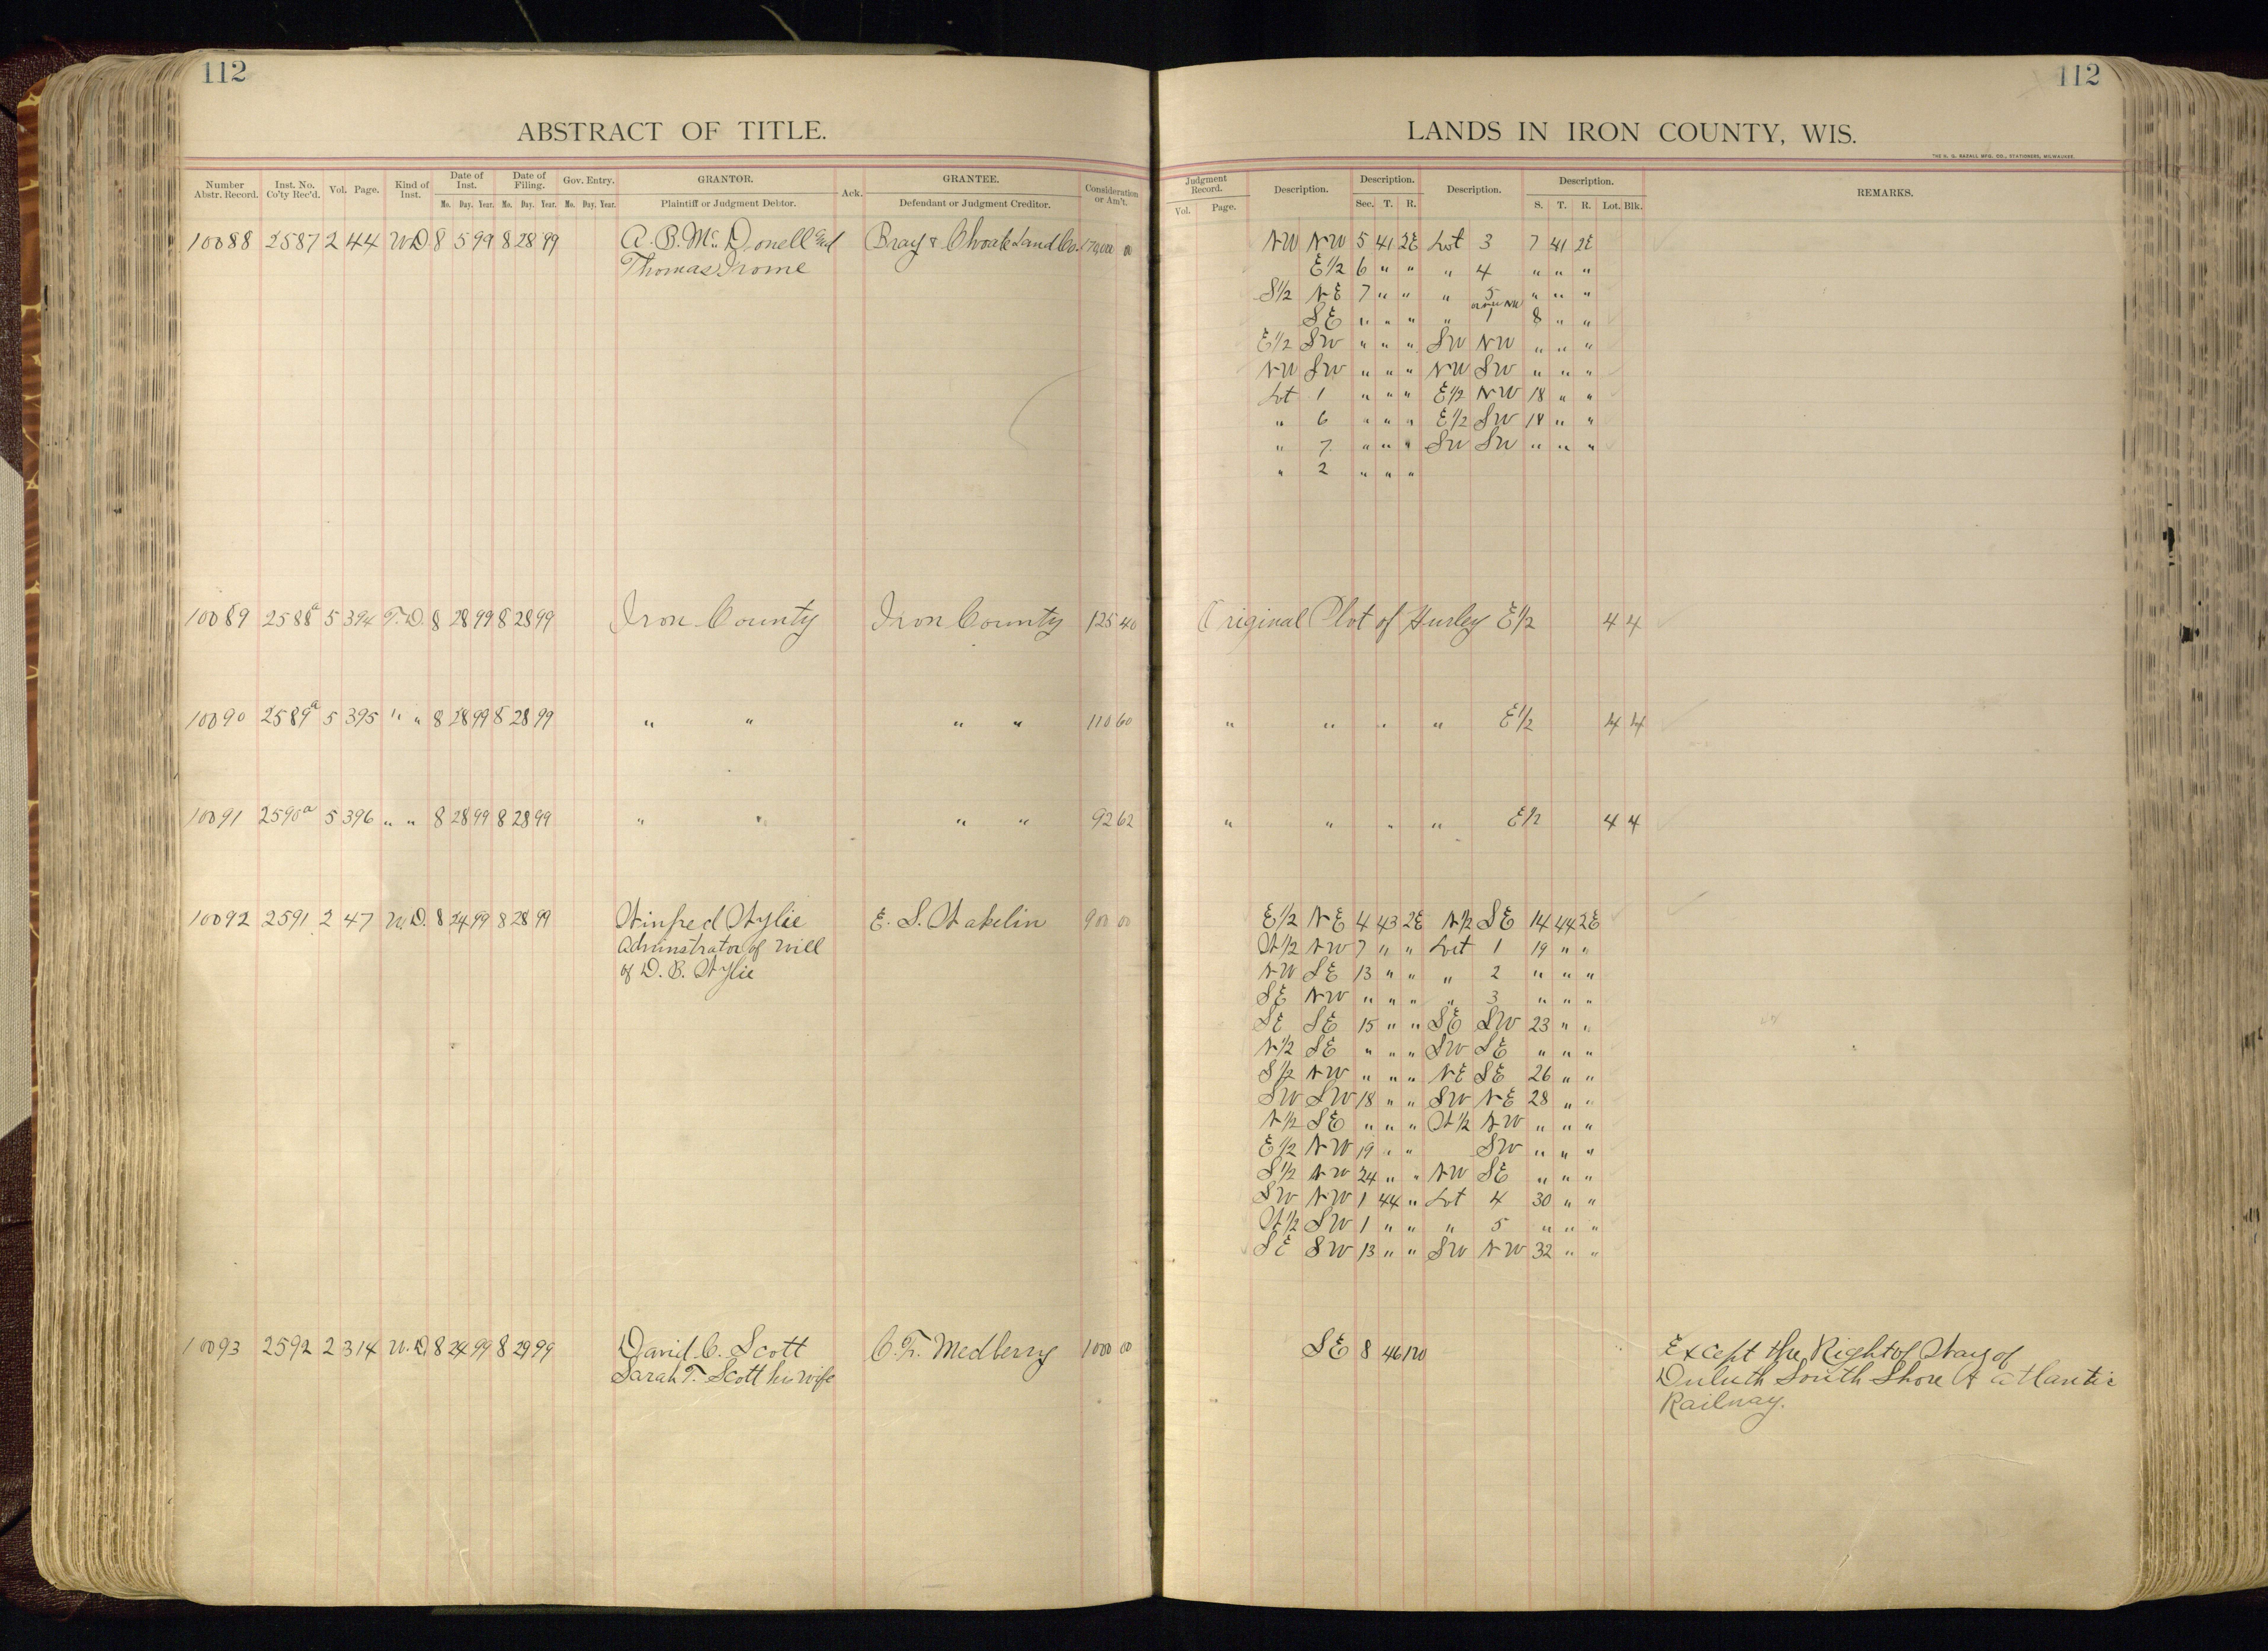 112
ABSTRACT OF TITLE.
Number Abstr. Record. Inst. No. Co'ty Rec'd. Vol. Page. Kind of Inst. Date of Inst. Mo. Day. Year. Date of Filing. Mo. Day. Year. Gov. Entry. Mo. Day. Year. GRANTOR. Plaintiff or Judgment Debtor. Ack. GRANTEE. Defendant or Judgment Creditor. Consideration or Am't.
10088 2587 2 44 W.D 8 5 99 8 28 99 A. B. Mc Donell and Bray & Choate Land Co. 00
Thomas
10089 2588a 5 394 T.D. 8 28 99 8 28 99 Iron County Iron County 125 40
10090 2589a 5 395 " " 8 28 99 8 28 99 " " " " 110 60
10091 2590a 5 396 " " 8 28 99 8 28 99 " " " " 92 62
10092 2591 2 47 W.D. 8 24 99 8 28 99 Winfred Wylie E. S. Wakelin 900 00
Adminstrator of will
of D. B. Wylie
10093 2592 2 314 W.D. 8 24 99 8 29 99 David C. Scott C. F. Medberry 1000 00
Sarah T. Scott his wife
112
LANDS IN IRON COUNTY, WIS.
THE H. G. RAZALL MFG. CO., STATIONERS, MILWAUKEE.
Judgment Record. Vol. Page. Description. Description. Sec. T. R. Description. Description. S. T. R. Lot. Blk. REMARKS.
NW NW 5 41 2E Lot 3 7 41 2E
E1/2 6 " " " 4 " " "
S1/2 NE 7 " " " 5 " " "
SE " " " " 1 8 " "
E1/2 SW " " " SW NW " " "
NW SW " " " NW SW " " "
Lot 1 " " " E1/2 NW 18 " "
" 6 " " " E1/2 SW 18 " "
" 7 " " " SW SW " " "
" 2 " " "
Original Plot of Hurley E1/2 4 4
" " " " E1/2 4 4
" " " " E1/2 4 4
E1/2 NE 4 43 2E N1/2 SE 14 44 2E
W1/2 NW 7 " " Lot 1 19 " "
NW SE 13 " " " 2 " " "
SE NW " " " " 3 " " "
SE SE 15 " " SE SW 23 " "
N1/2 SE " " " SW SE " " "
S1/2 NW " " " NE SE 26 " "
SW SW 18 " " SW NE 28 " "
N1/2 SE " " " W1/2 NW " " "
E1/2 NW 19 " " SW " " "
S1/2 NW 24 " " NW SE " " "
SW NW 1 44 " Lot 4 30 " "
W1/2 SW 1 " " " 5 " " "
SE SW 13 " " SW NW 32 " "
SE 8 46 Except the Right of Way of
Duluth South Shore & Atlantic
Railway.